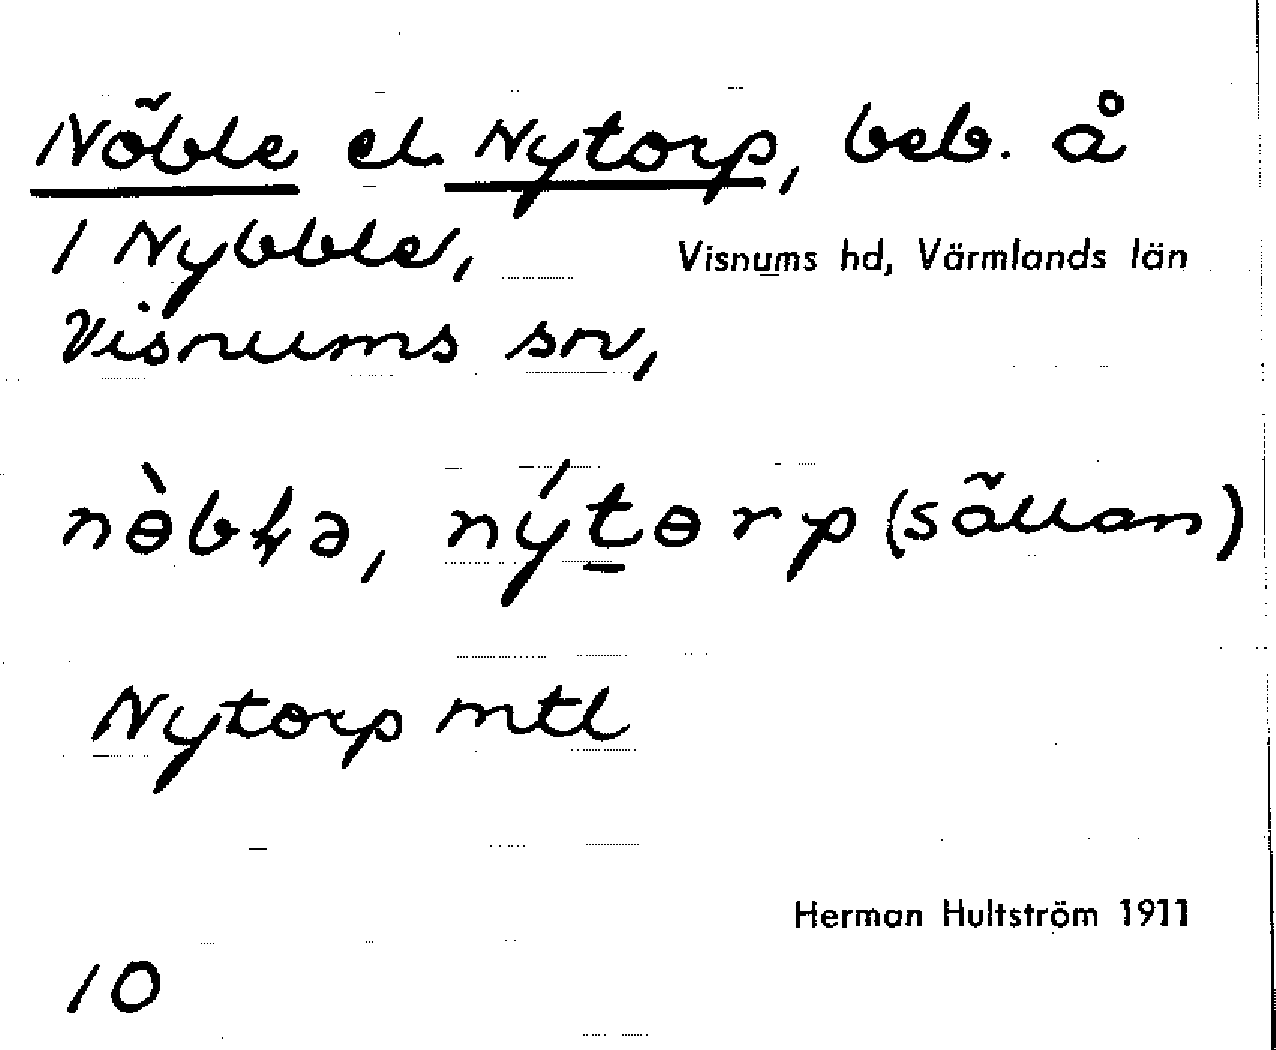 Nöble el. Nytorp, beb. å
1 Nybble,
Visnums hd, Värmlands län
Visnums sn,
nɵ̀bꞎə, nýtɵrp (sällan)
Nytorp mtl
Herman Hultström 1911
10